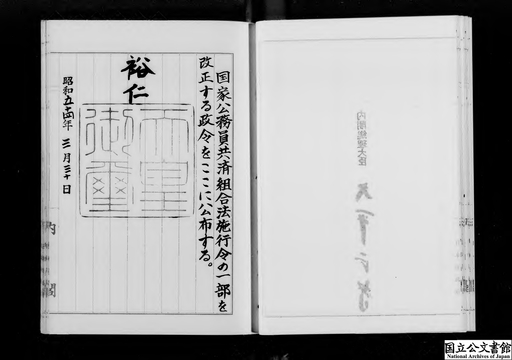 国家公務員共済組合法施行令の一部を
改正する政令をここに公布する。
裕仁
天皇
御璽
昭和五十四年三月三十日
内閣
国立公文書館
National Archives of Japan